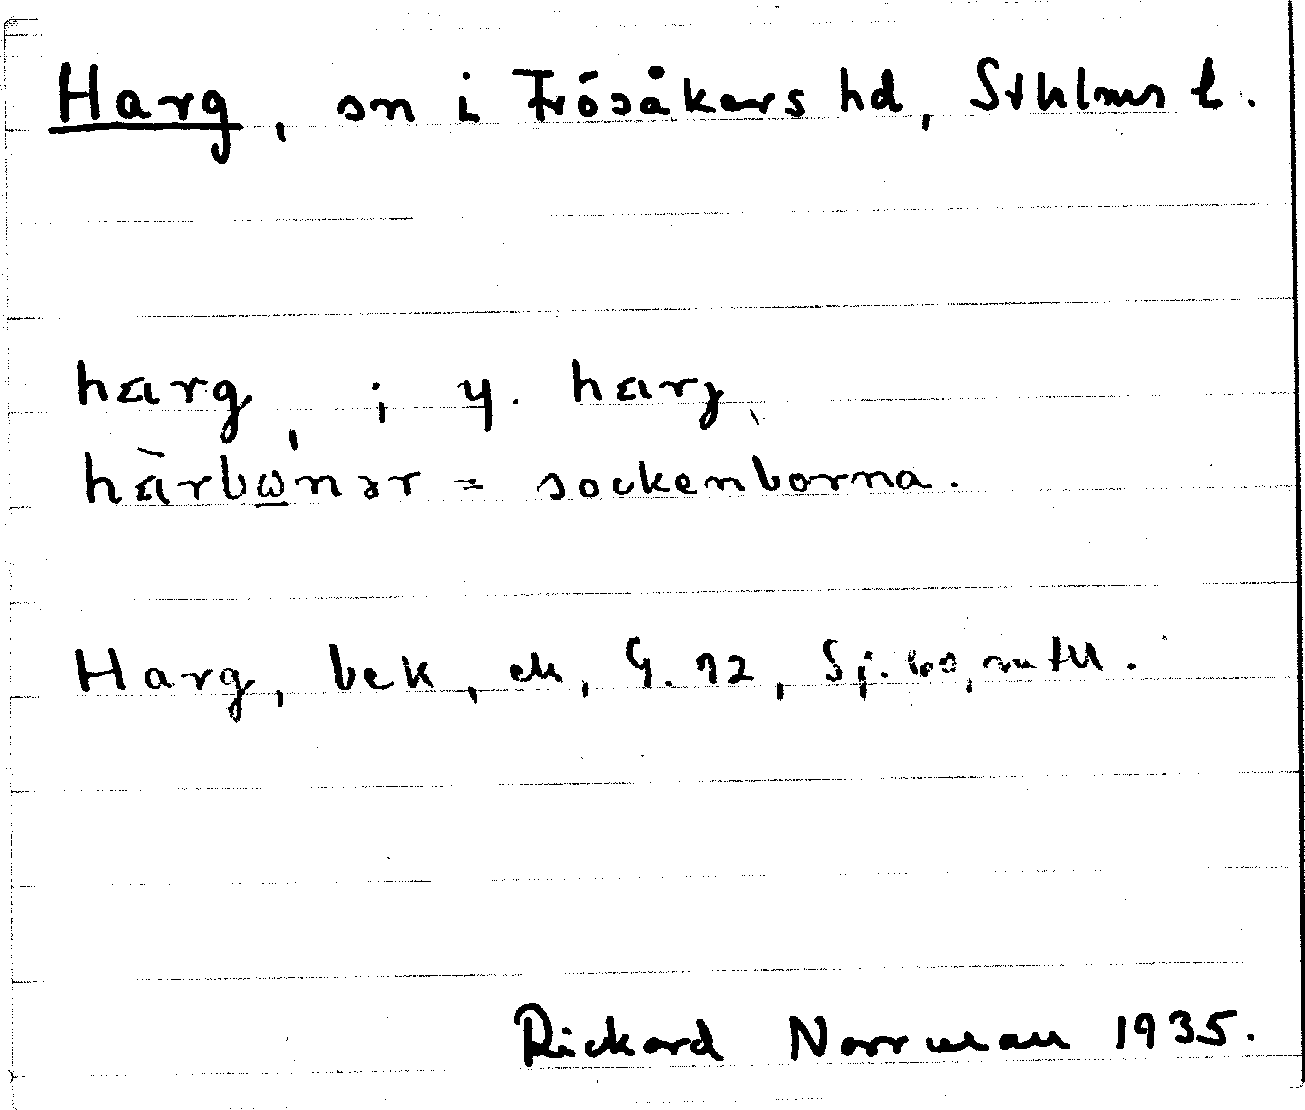 Harg, sn i Frösåkers hd, Sthlms l.
harg, ; y. harj,
hārbωnər = sockenborna.
Harg, bek, ek, G. 12, Sj.
Rickard Norrman 1935.